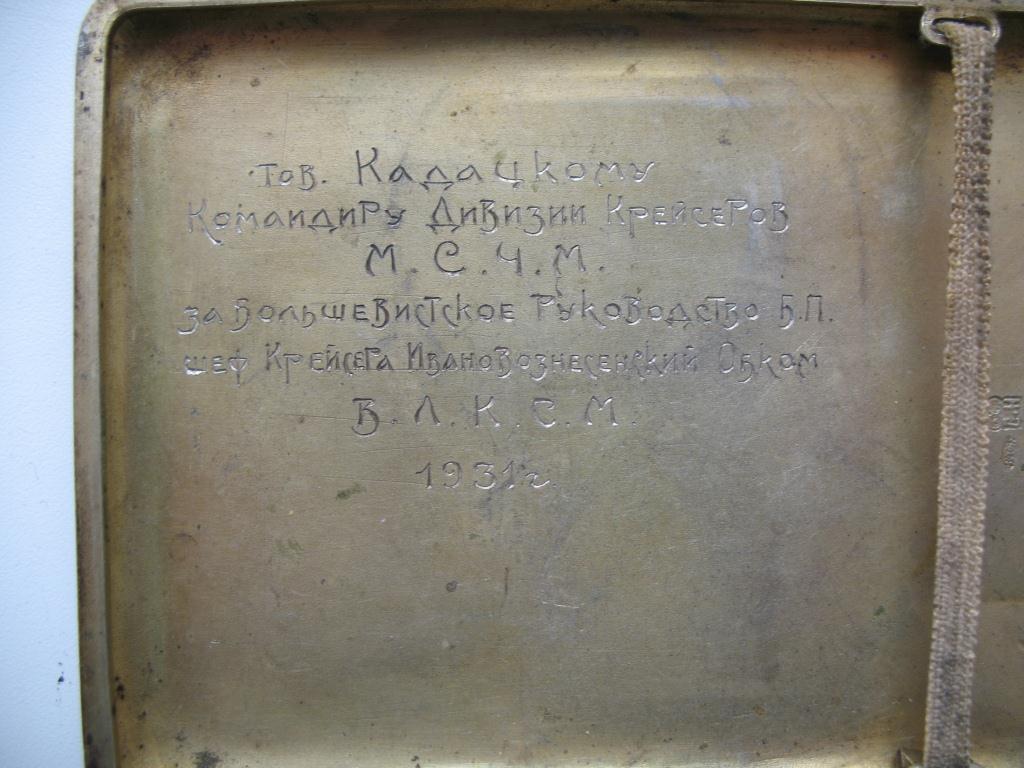 тов. Кадацкому
Командиру Дивизии Крейсеров
М.С.Ч.М.
за Большевистское Руководство Б.П.
шеф Крейсера Ивановознесенский Обком
В.Л.К.С.М.
1931г.